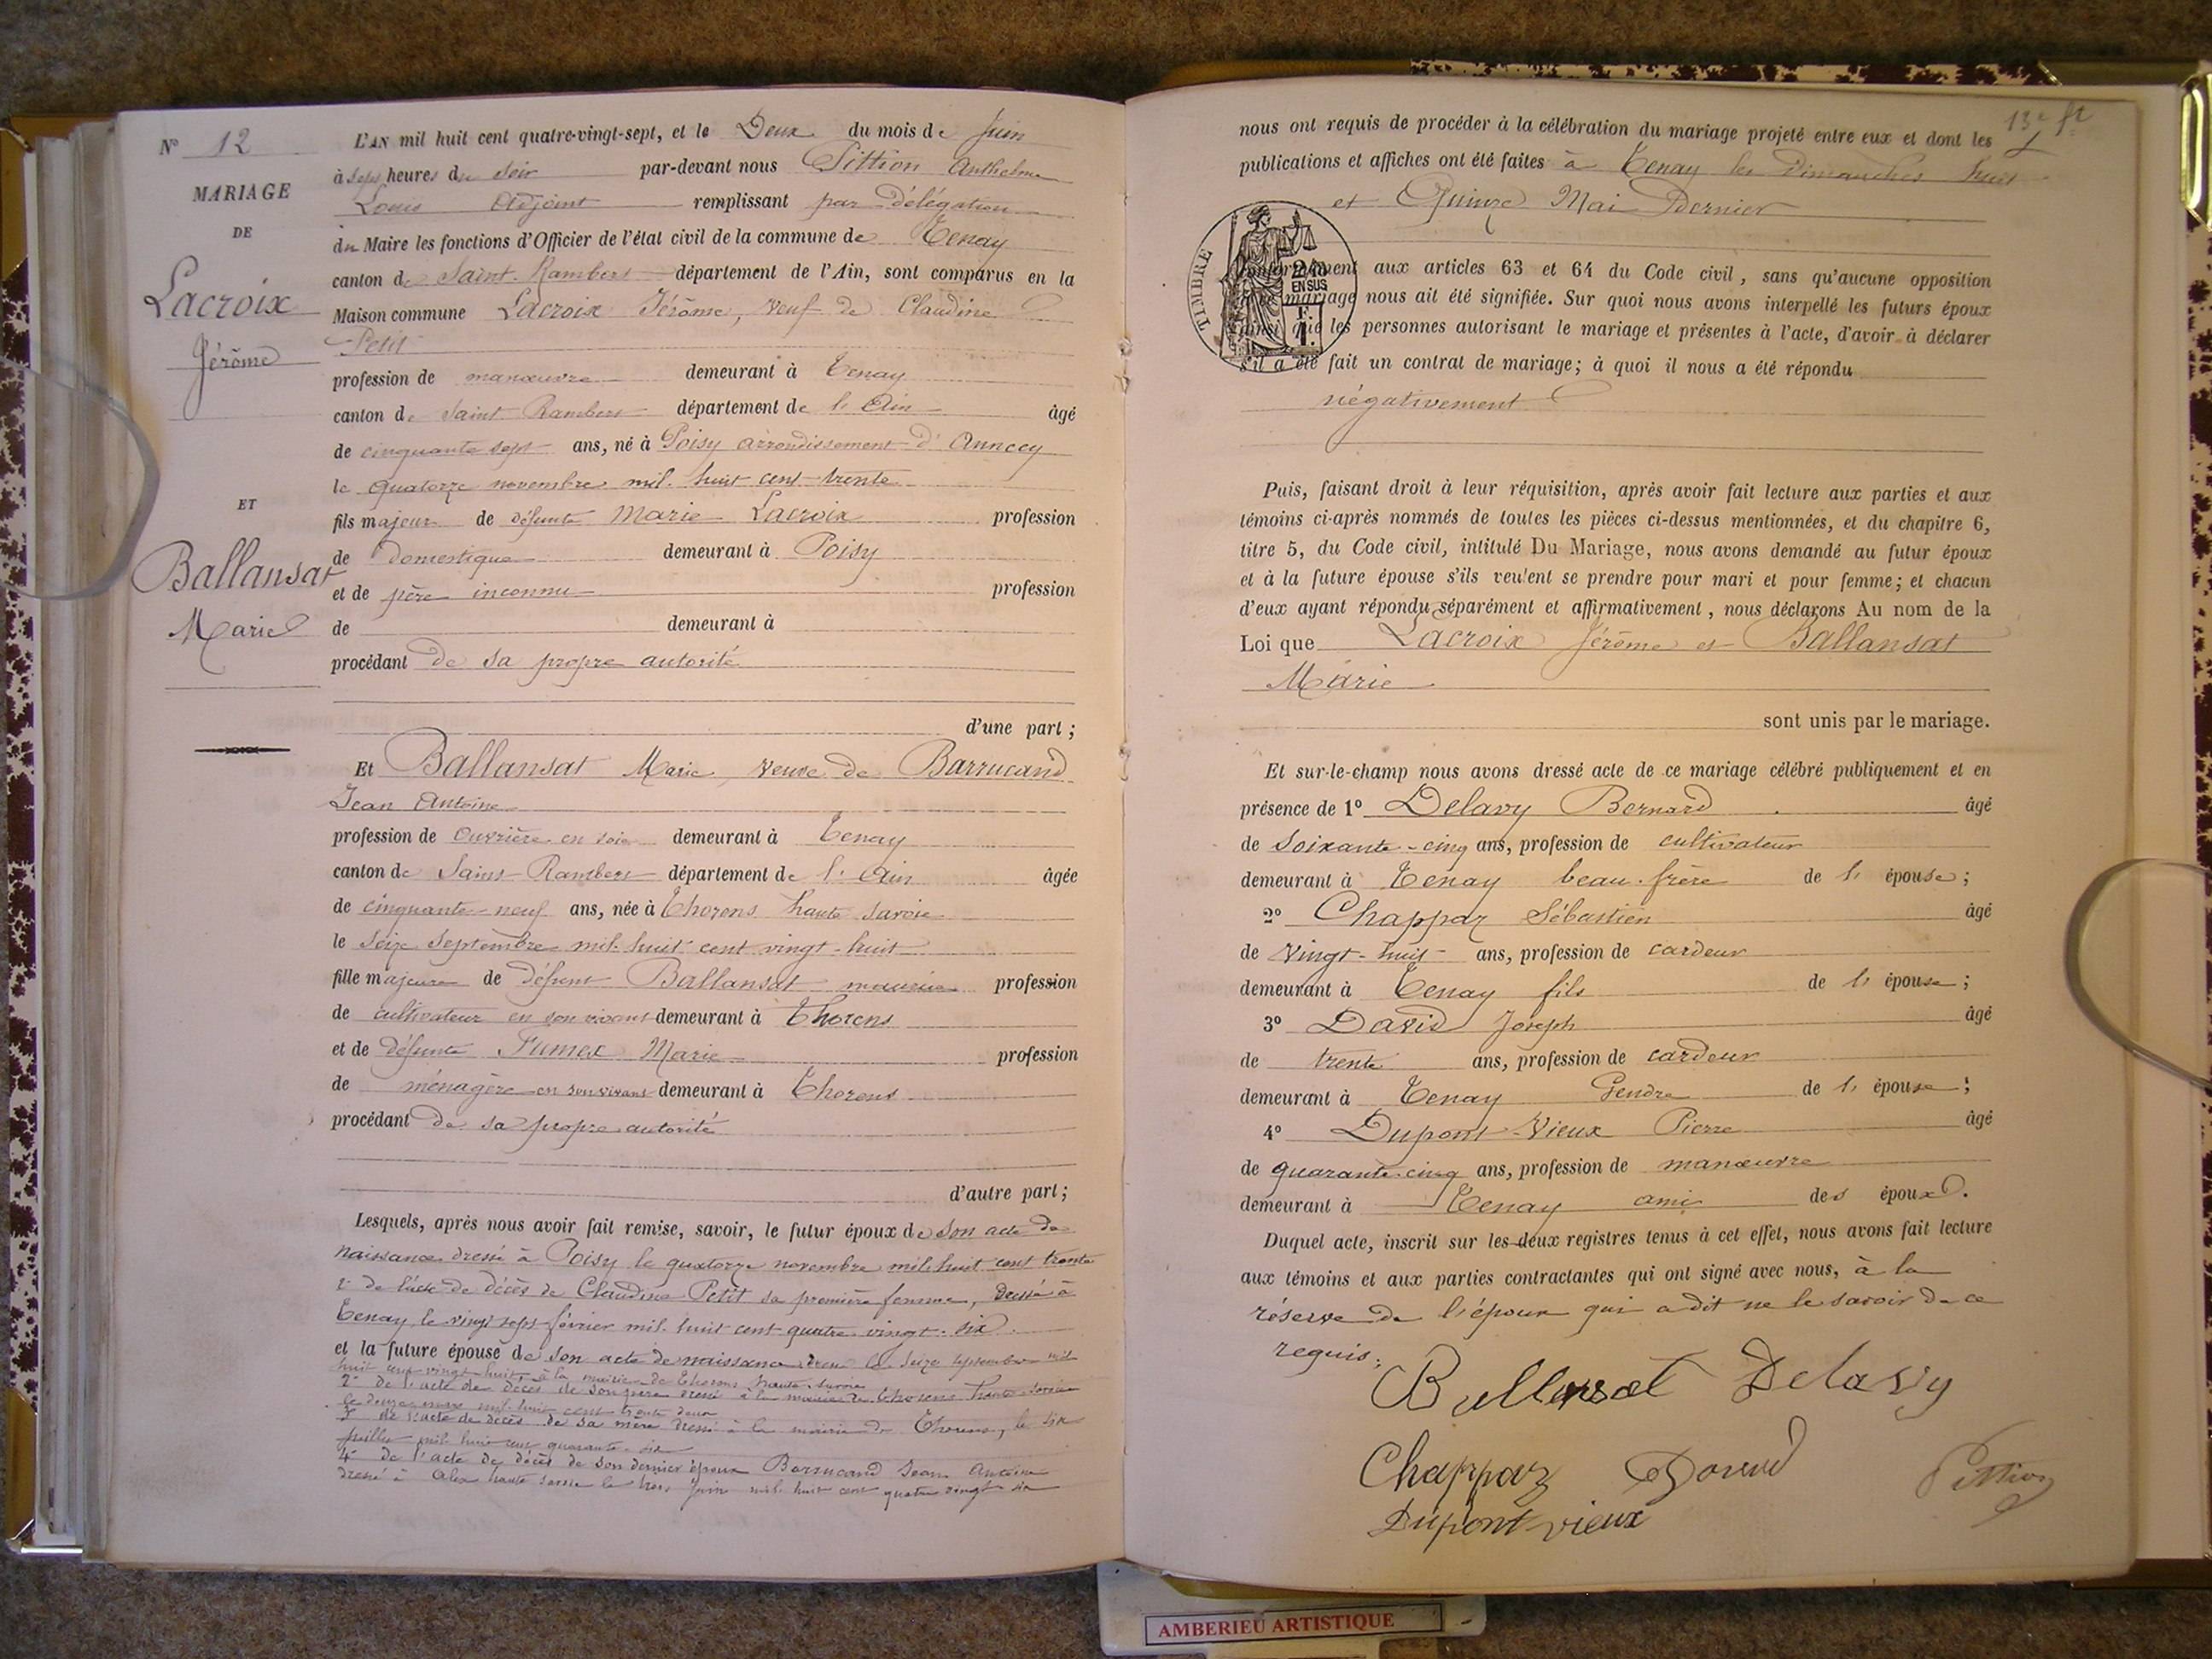 N° 12
MARIAGE
DE
Lacroix
Jérôme
ET
Ballansat
Marie
L'AN mil huit cent quatre-vingt-sept, et le Deux du mois de Juin
à sept heures du soir par-devant nous Pittion Anthelme
Louis Adjoint remplissant par Délégation
du Maire les fonctions d'Officier de l'état civil de la commune de Tenay
canton de Saint-Rambert département de l'Ain, sont comparus en la
Maison commune Lacroix Jérôme, veuf de Claudine
Petit
profession de manœuvre demeurant à Tenay
canton de Saint Rambert département de l'Ain âgé
de cinquante sept ans, né à Poisy arrondissement d'Annecy
le quatorze novembre mil huit cent trente
fils majeur de défunte Marie Lacroix profession
de Domestique demeurant à Poisy
et de père inconnu profession
de demeurant à
procédant de sa propre autorité
d'une part ;
Et Ballansat Marie, veuve de Barrucand
Jean Antoine
profession de ouvrière en soie demeurant à Tenay
canton de Saint-Rambert département de l'Ain âgée
de cinquante-neuf ans, née à Thorens haute Savoie
le seize Septembre mil huit cent vingt-huit
fille majeure de défunt Ballansat profession
de cultivateur en son vivant demeurant à Thorens
et de défunte Fumex Marie profession
de ménagère en son vivant demeurant à Thorens
procédant de sa propre autorité
d'autre part ;
Lesquels, après nous avoir fait remise, savoir, le futur époux de son acte de
naissance dressé à Poisy le quatorze novembre mil huit cent trente
2° de l'acte de décès de Claudine Petit sa première femme, dressé à
Tenay le vingt sept février mil huit cent quatre vingt-six.
et la future épouse de son acte de naissance dressé le seize septembre mil
huit cent vingt huit, à la mairie de Thorens haute-Savoie
2° de l'acte de décès de son père dressé à la mairie de Thorens haute-Savoie
le douze mars mil huit cent trente deux
3° de l'acte de décès de sa mère dressé à la mairie de Thorens, le six
juillet mil huit cent quarante-six
4° de l'acte de décès de son dernier époux Barrucand Jean Antoine
dressé à Alex haute Savoie le trois Juin mil huit cent quatre vingt six
13e ft
nous ont requis de procéder à la célébration du mariage projeté entre eux et dont les
publications et affiches ont été faites à Tenay les Dimanches huit
et Quinze Mai Dernier
TIMBRE
EN SUS
conformément aux articles 63 et 64 du Code civil, sans qu'aucune opposition
mariage nous ait été signifiée. Sur quoi nous avons interpellé les futurs époux
ainsi que les personnes autorisant le mariage et présentes à l'acte, d'avoir à déclarer
s'il a été fait un contrat de mariage ; à quoi il nous a été répondu
négativement
Puis, faisant droit à leur réquisition, après avoir fait lecture aux parties et aux
témoins ci-après nommés de toutes les pièces ci-dessus mentionnées, et du chapitre 6,
titre 5, du Code civil, intitulé Du Mariage, nous avons demandé au futur époux
et à la future épouse s'ils veulent se prendre pour mari et pour femme ; et chacun
d'eux ayant répondu séparément et affirmativement, nous déclarons Au nom de la
Loi que Lacroix Jérôme et Ballansat
Marie
sont unis par le mariage.
Et sur-le-champ nous avons dressé acte de ce mariage célébré publiquement et en
présence de 1° Delavy Bernard âgé
de soixante-cinq ans, profession de cultivateur
demeurant à Tenay beau-frère de l'épouse ;
2° Chappaz Sébastien âgé
de vingt-huit ans, profession de cardeur
demeurant à Tenay fils de l'épouse ;
3° David Joseph âgé
de trente ans, profession de cardeur
demeurant à Tenay Gendre de l'épouse ;
4° Dupont-Vieux Pierre âgé
de quarante-cinq ans, profession de manœuvre
demeurant à Tenay ami des époux.
Duquel acte, inscrit sur les deux registres tenus à cet effet, nous avons fait lecture
aux témoins et aux parties contractantes qui ont signé avec nous, à la
réserve de l'époux qui a dit ne le savoir de ce
requis.
Ballansat Delavy
Chappaz David Pittion
Dupont vieux
AMBERIEU ARTISTIQUE